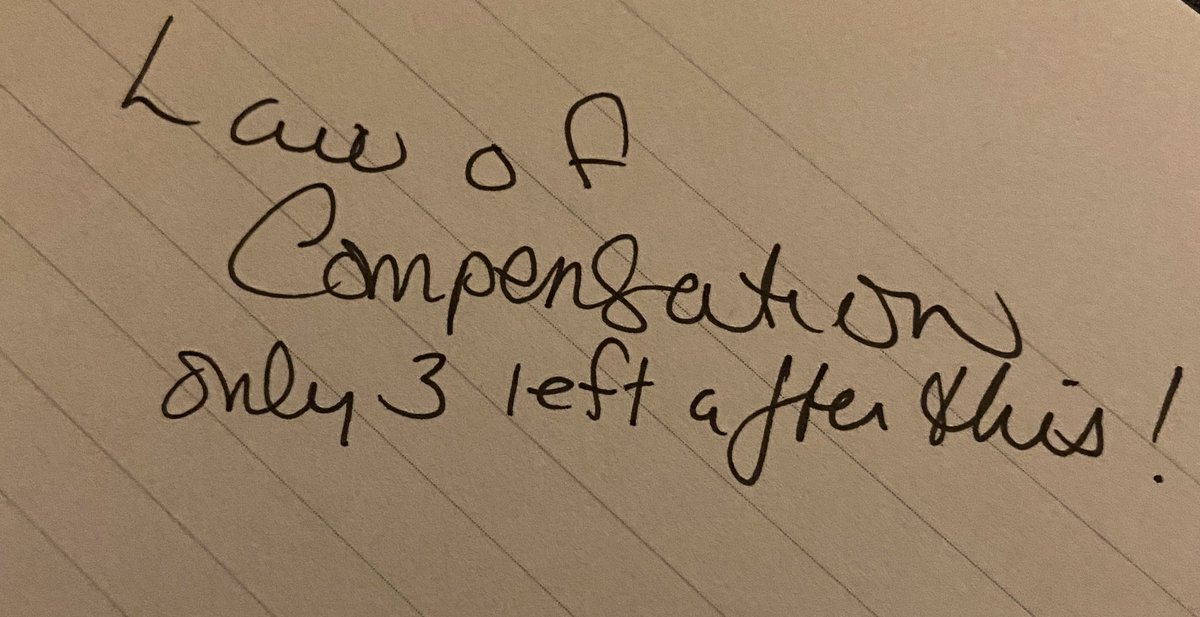 Law of
Compensation
only 3 left after this!